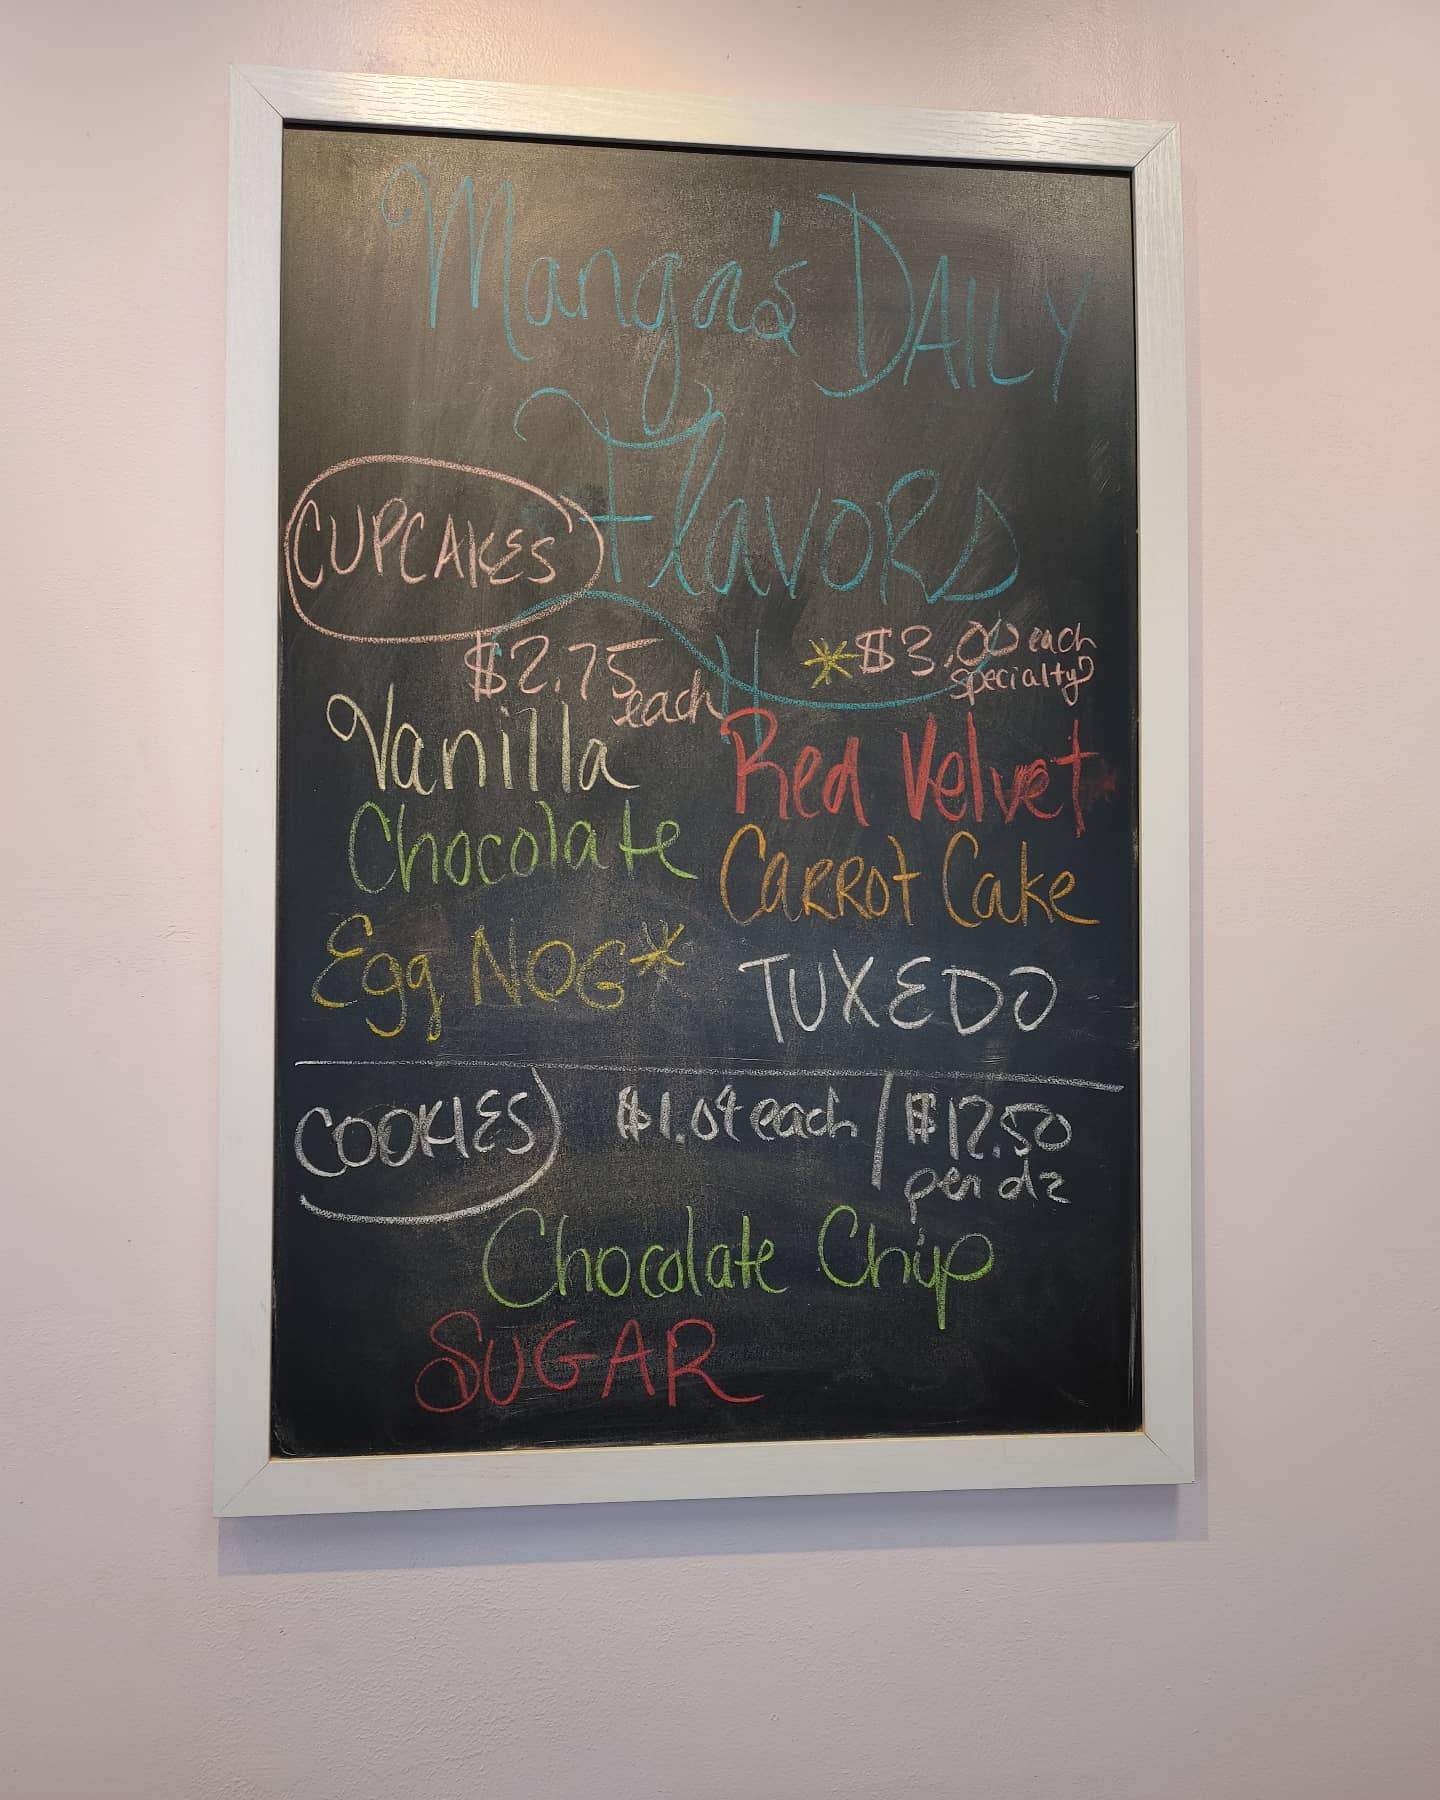 Manga's DAILY
Flavors
CUPCAKES
$2.75 each
*$3.00 each
specialty
Vanilla
Red Velvet
Chocolate
Carrot Cake
Egg NOG*
TUXEDO
COOKIES $1.09 each / $12.50
per dz
Chocolate Chip
SUGAR